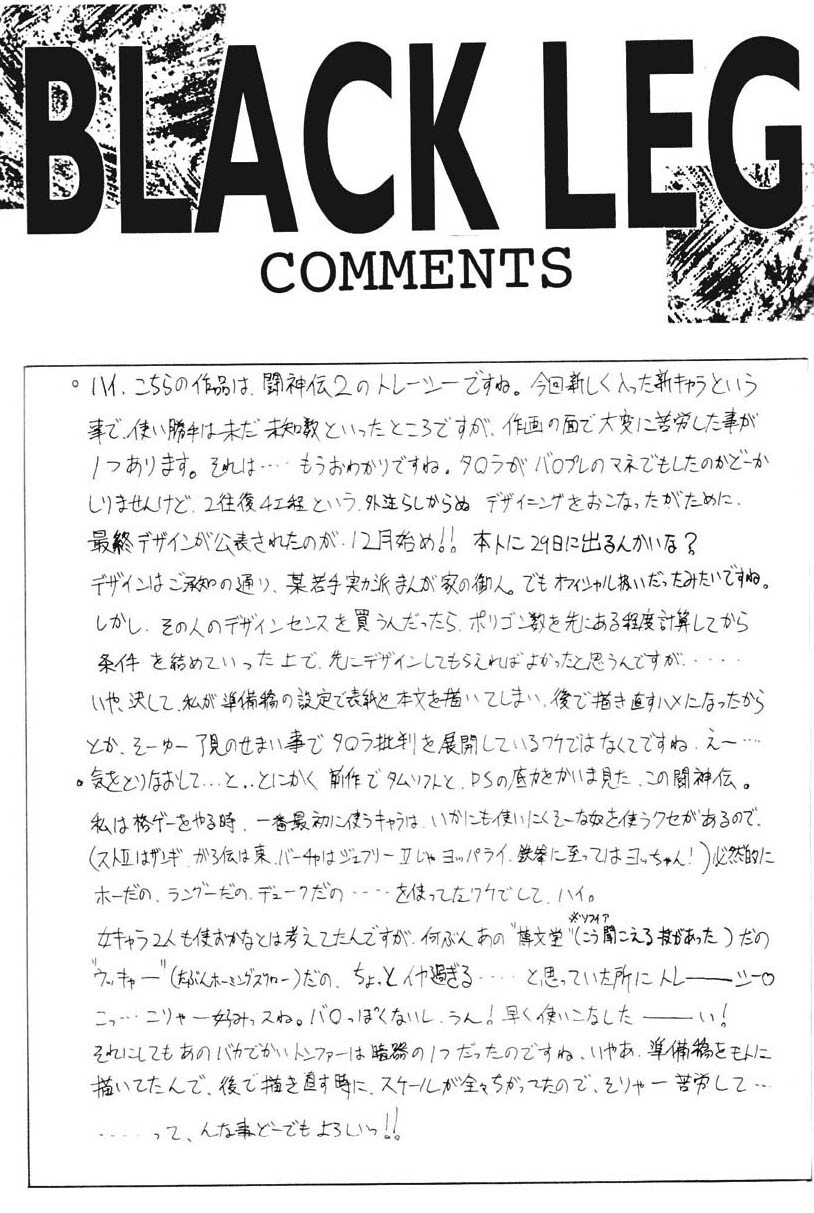 BLACK LEG
COMMENTS
。ハイ、こちらの作品は、闘神伝2のトレーシーですね。今回新しく入った新キャラという
事で、使い勝手は未だ未知数といったところですが、作画の面で大変に苦労した事が
1つあります。それは‥‥もうおわかりですね。タロラがバロプレのマネでもしたのかどーか
しりませんけど、2往復4工程という、外注らしからぬ デザイニングをおこなったがために、
最終デザインが公表されたのが、12月始め!! 本トに29日に出るんかいな?
デザインはご承知の通り、某若手実力派まんが家の御人。でもオフィシャル扱いだったみたいですね。
しかし、その人のデザインセンスを買うんだったら、ポリゴン数を先にある程度計算してから
条件を結めていった上で、先にデザインしてもらえればよかったと思うんですが、‥‥‥
いや、決して、私が準備稿の設定で表紙と本文を描いてしまい、後で描き直すハメになったから
とか、そーゆー了見のせまい事でタロラ批判を展開しているワケではなくてですね、えー‥‥
。気をとりなおして…と‥とにかく前作でタムソフトと、PSの底力をかいま見た、この闘神伝。
私は格ゲーをやる時、一番最初に使うキャラは、いかにも使いにくそーな奴を使うクセがあるので、
(ストⅡはザンギ、がろ伝は東、バーチャはジェフリーⅡじゃヨッパライ、鉄拳に至ってはヨッちゃん!)必然的に
ホーだの、ラングーだの、デュークだの‥‥を使ってたワケでして、ハイ。
女キャラ2人も使おかなとは考えてたんですが、何ぶんあの"博文堂"(こう聞こえる技があった)だの
※ソフィア
"ウッキャー"(たぶんホーミングスクロー)だの、ちょっとイヤ過ぎる‥‥と思っていた所にトレ――シー○
こっ…こりゃー好みっスね。バロっぽくないし、うん!早く使いこなした――い!
それにしてもあのバカでかいトンファーは暗器の1つだったのですね、いやあ、準備稿をモトに
描いてたんで、後で描き直す時に、スケールが全々ちがってたので、そりゃー苦労して…
‥‥‥って、んな事どーでもよろしいっ!!